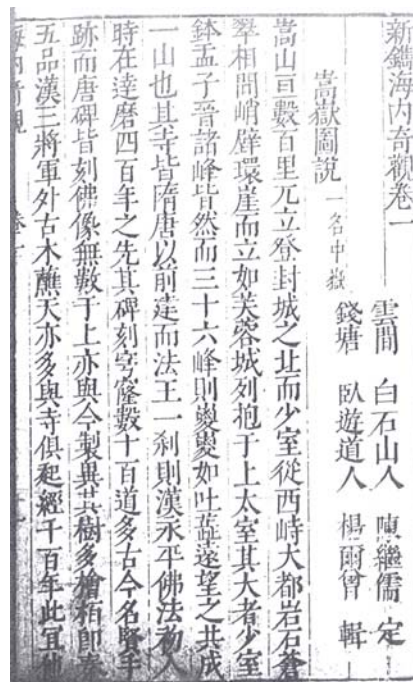 新鐫海內奇觀卷一
雲間 白石山人 陳繼儒 定
錢塘 臥遊道人 楊爾曾 輯
嵩嶽圖說 一名中嶽
嵩山亘數百里兀立登封城之北而少室從西峙大都岩石蒼
翠相間峭壁環崖而立如芙蓉城列抱于上太室其大者少室
鉢盂子晉諸峰皆然而三十六峰則嬝嬝如吐蕋遂望之共成
一山也其寺皆隋唐以前建而法王一剎則漢永平佛法初入
時在達磨四百年之先其碑刻穹窿數十百道多古今名賢手
跡而唐碑皆刻佛像無數于上亦與今製異其樹多檜栢即秦
五品漢三將軍外古木蘸天亦多與寺俱起經千百年此宜他
海內奇觀 卷一